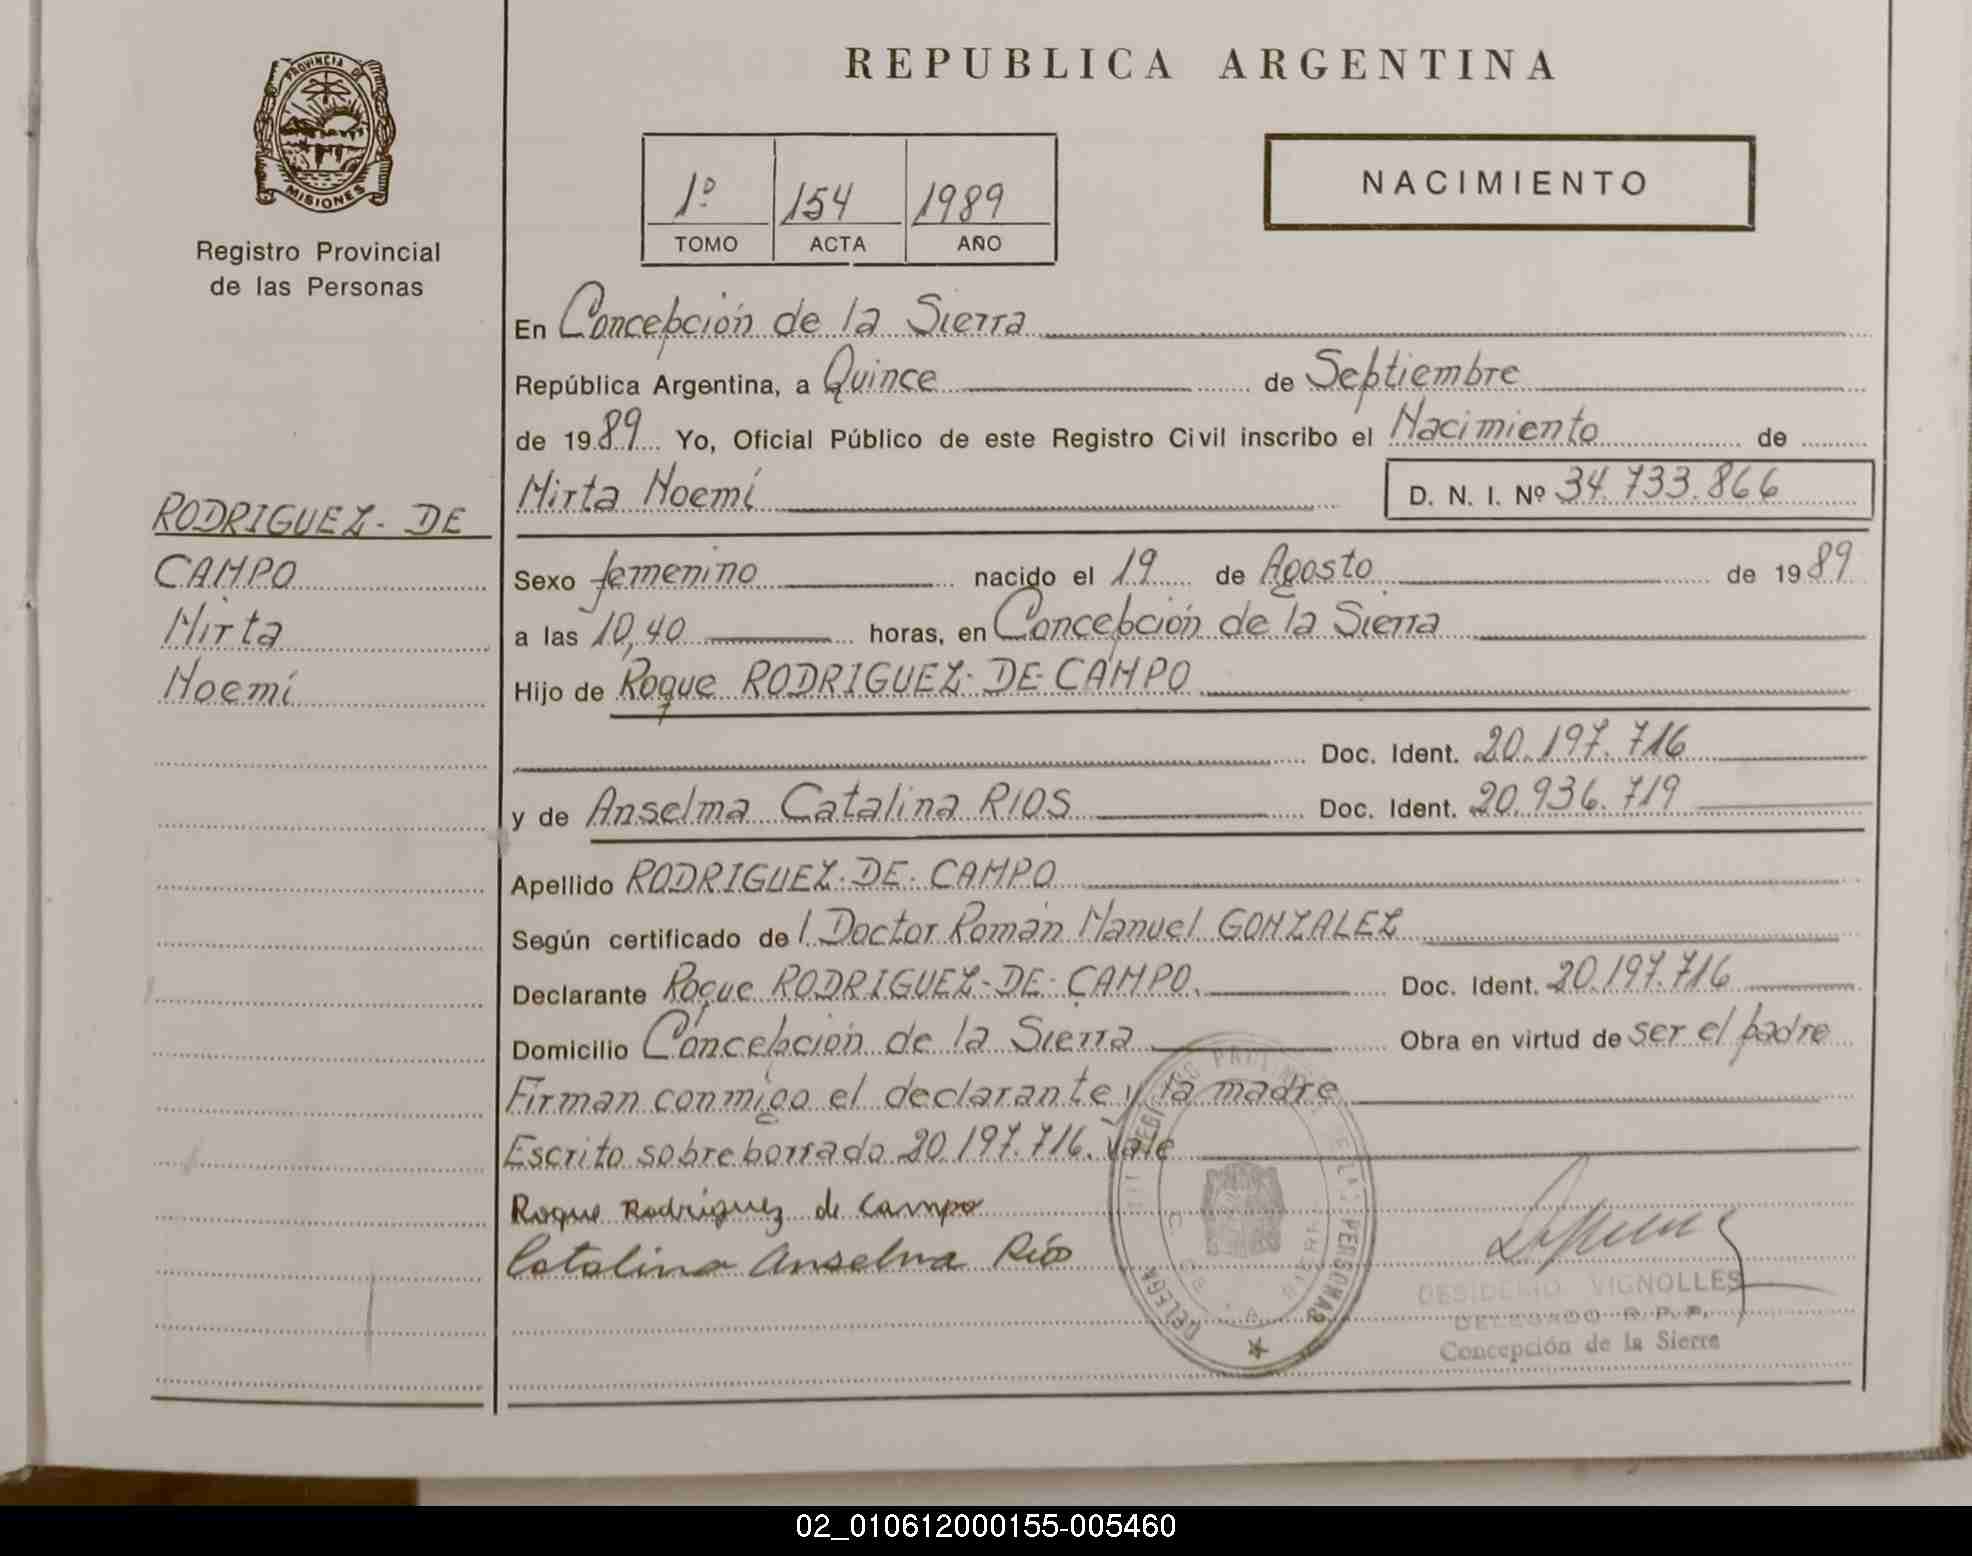 REPUBLICA ARGENTINA
PROVINCIA DE
MISIONES
Registro Provincial
de las Personas
1º 154 1989
TOMO ACTA AÑO
NACIMIENTO
En Concepción de la Sierra
República Argentina, a Quince de Septiembre
de 1989 Yo, Oficial Público de este Registro Civil inscribo el Nacimiento de
Mirta Noemí D. N. I. Nº 34.733.866
RODRIGUEZ-DE
CAMPO
Mirta
Noemí
Sexo femenino nacido el 19 de Agosto de 1989
a las 10,40 horas, en Concepción de la Sierra
Hijo de Roque RODRIGUEZ-DE-CAMPO
Doc. Ident. 20.197.716
y de Anselma Catalina RIOS Doc. Ident. 20.936.719
Apellido RODRIGUEZ-DE-CAMPO
Según certificado del Doctor Román Manuel GONZALEZ
Declarante Roque RODRIGUEZ-DE-CAMPO. Doc. Ident. 20.197.716
Domicilio Concepción de la Sierra Obra en virtud de ser el padre
Firman conmigo el declarante y la madre
Escrito sobre borrado 20.197.716. Vale
Roque Rodriguez de Campo
Catalina Anselma Río
DESIDERIO VIGNOLLES
DELEGADO R.P.P.
Concepción de la Sierra
02_010612000155-005460